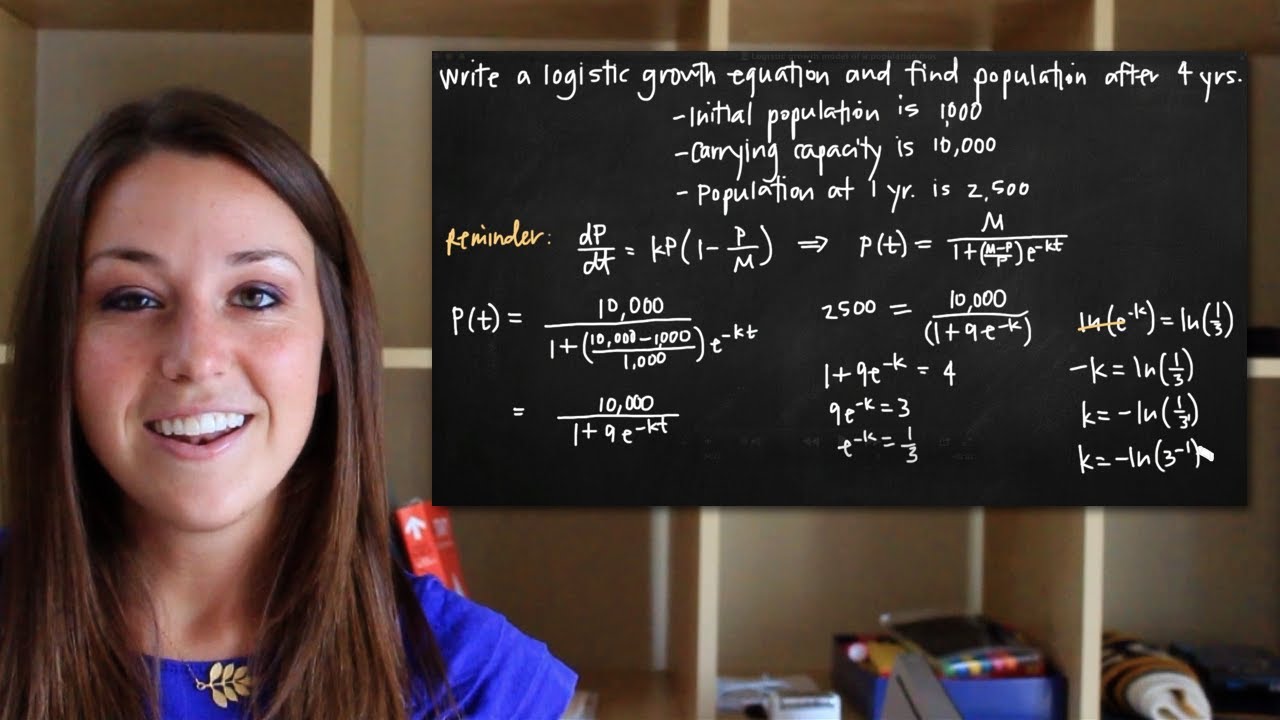 Write a logistic growth equation and find population after 4 yrs.
- Initial population is 1,000
- Carrying capacity is 10,000
- Population at 1 yr. is 2,500
Reminder: dP/dt = kP(1 - P/M) ⇒ P(t) = M/(1+((M-P)/P)e^-kt)
P(t) = 10,000/(1+((10,000-1,000)/1,000)e^-kt)
= 10,000/(1+9e^-kt)
2500 = 10,000/(1+9e^-k)
1+9e^-k = 4
9e^-k = 3
e^-k = 1/3
ln(e^-k) = ln(1/3)
-k = ln(1/3)
k = -ln(1/3)
k = -ln(3^-1)